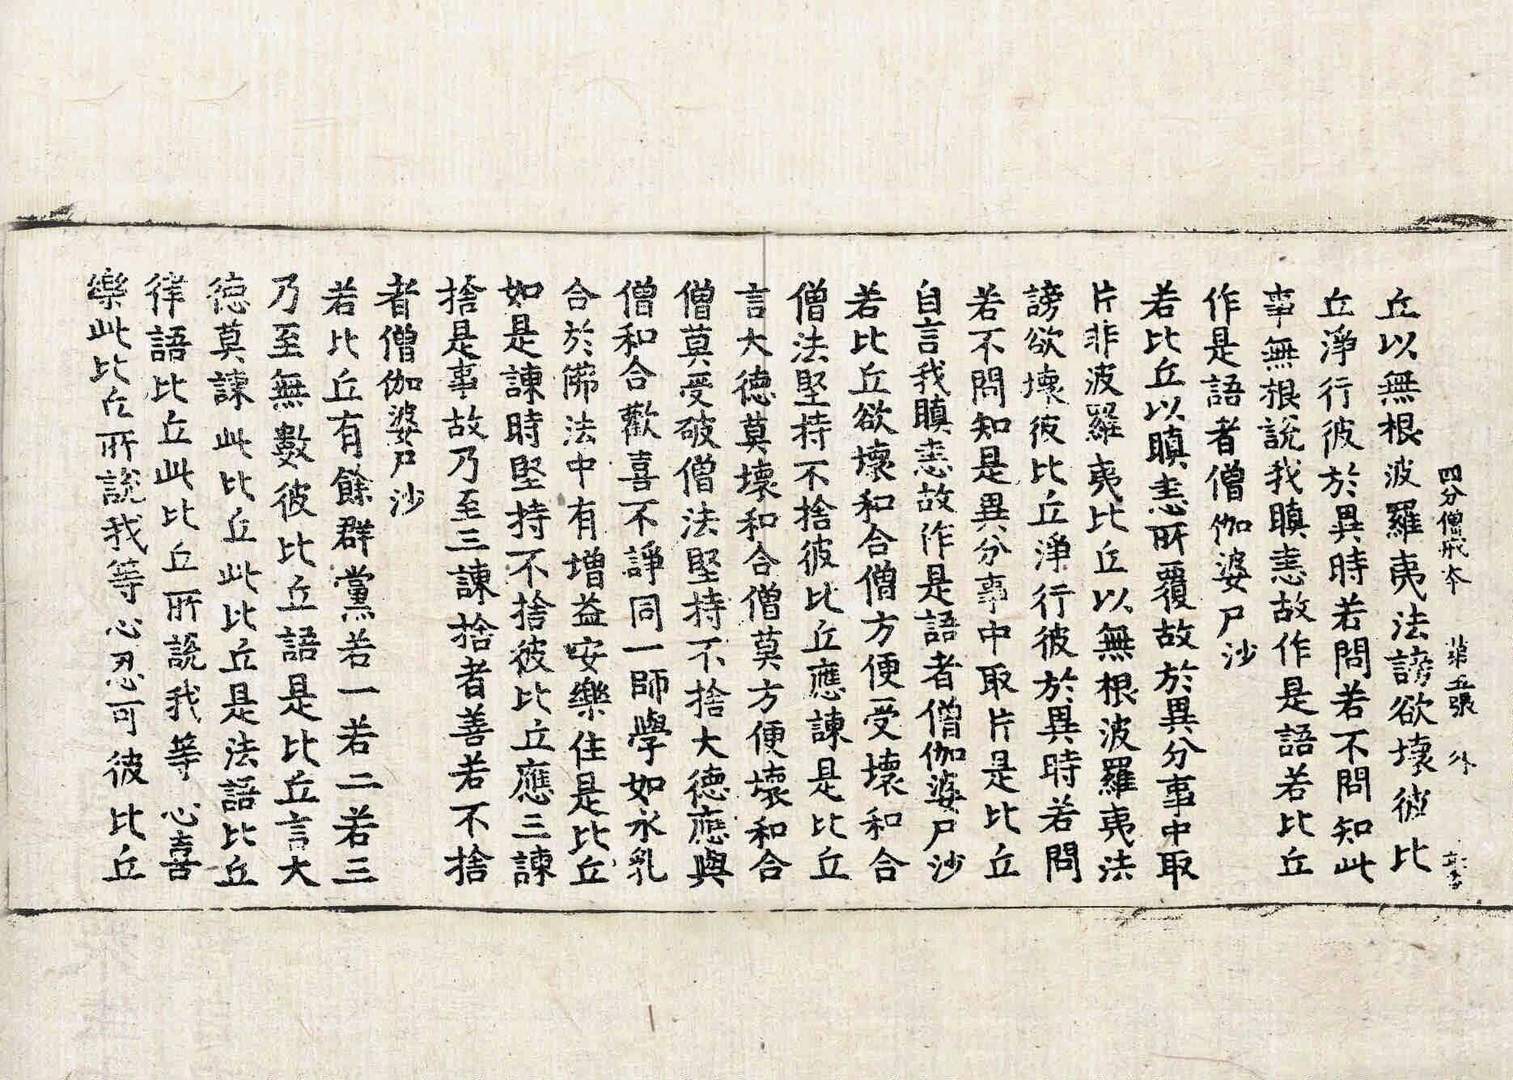 四分僧戒本 第五張 外
丘以無根波羅夷法謗欲壞彼比
丘淨行彼於異時若問若不問知此
事無根說我瞋恚故作是語若比丘
作是語者僧伽婆尸沙
若比丘以瞋恚所覆故於異分事中取
片非波羅夷比丘以無根波羅夷法
謗欲壞彼比丘淨行彼於異時若問
若不問知是異分事中取片是比丘
自言我瞋恚故作是語者僧伽婆尸沙
若比丘欲壞和合僧方便受壞和合
僧法堅持不捨彼比丘應諫是比丘
言大德莫壞和合僧莫方便壞和合
僧莫受破僧法堅持不捨大德應與
僧和合歡喜不諍同一師學如水乳
合於佛法中有增益安樂住是比丘
如是諫時堅持不捨彼比丘應三諫
捨是事故乃至三諫捨者善若不捨
者僧伽婆尸沙
若比丘有餘群黨若一若二若三
乃至無數彼比丘語是比丘言大
德莫諫此比丘此比丘是法語比丘
律語比丘此比丘所說我等心喜
樂此比丘所說我等心忍可彼比丘